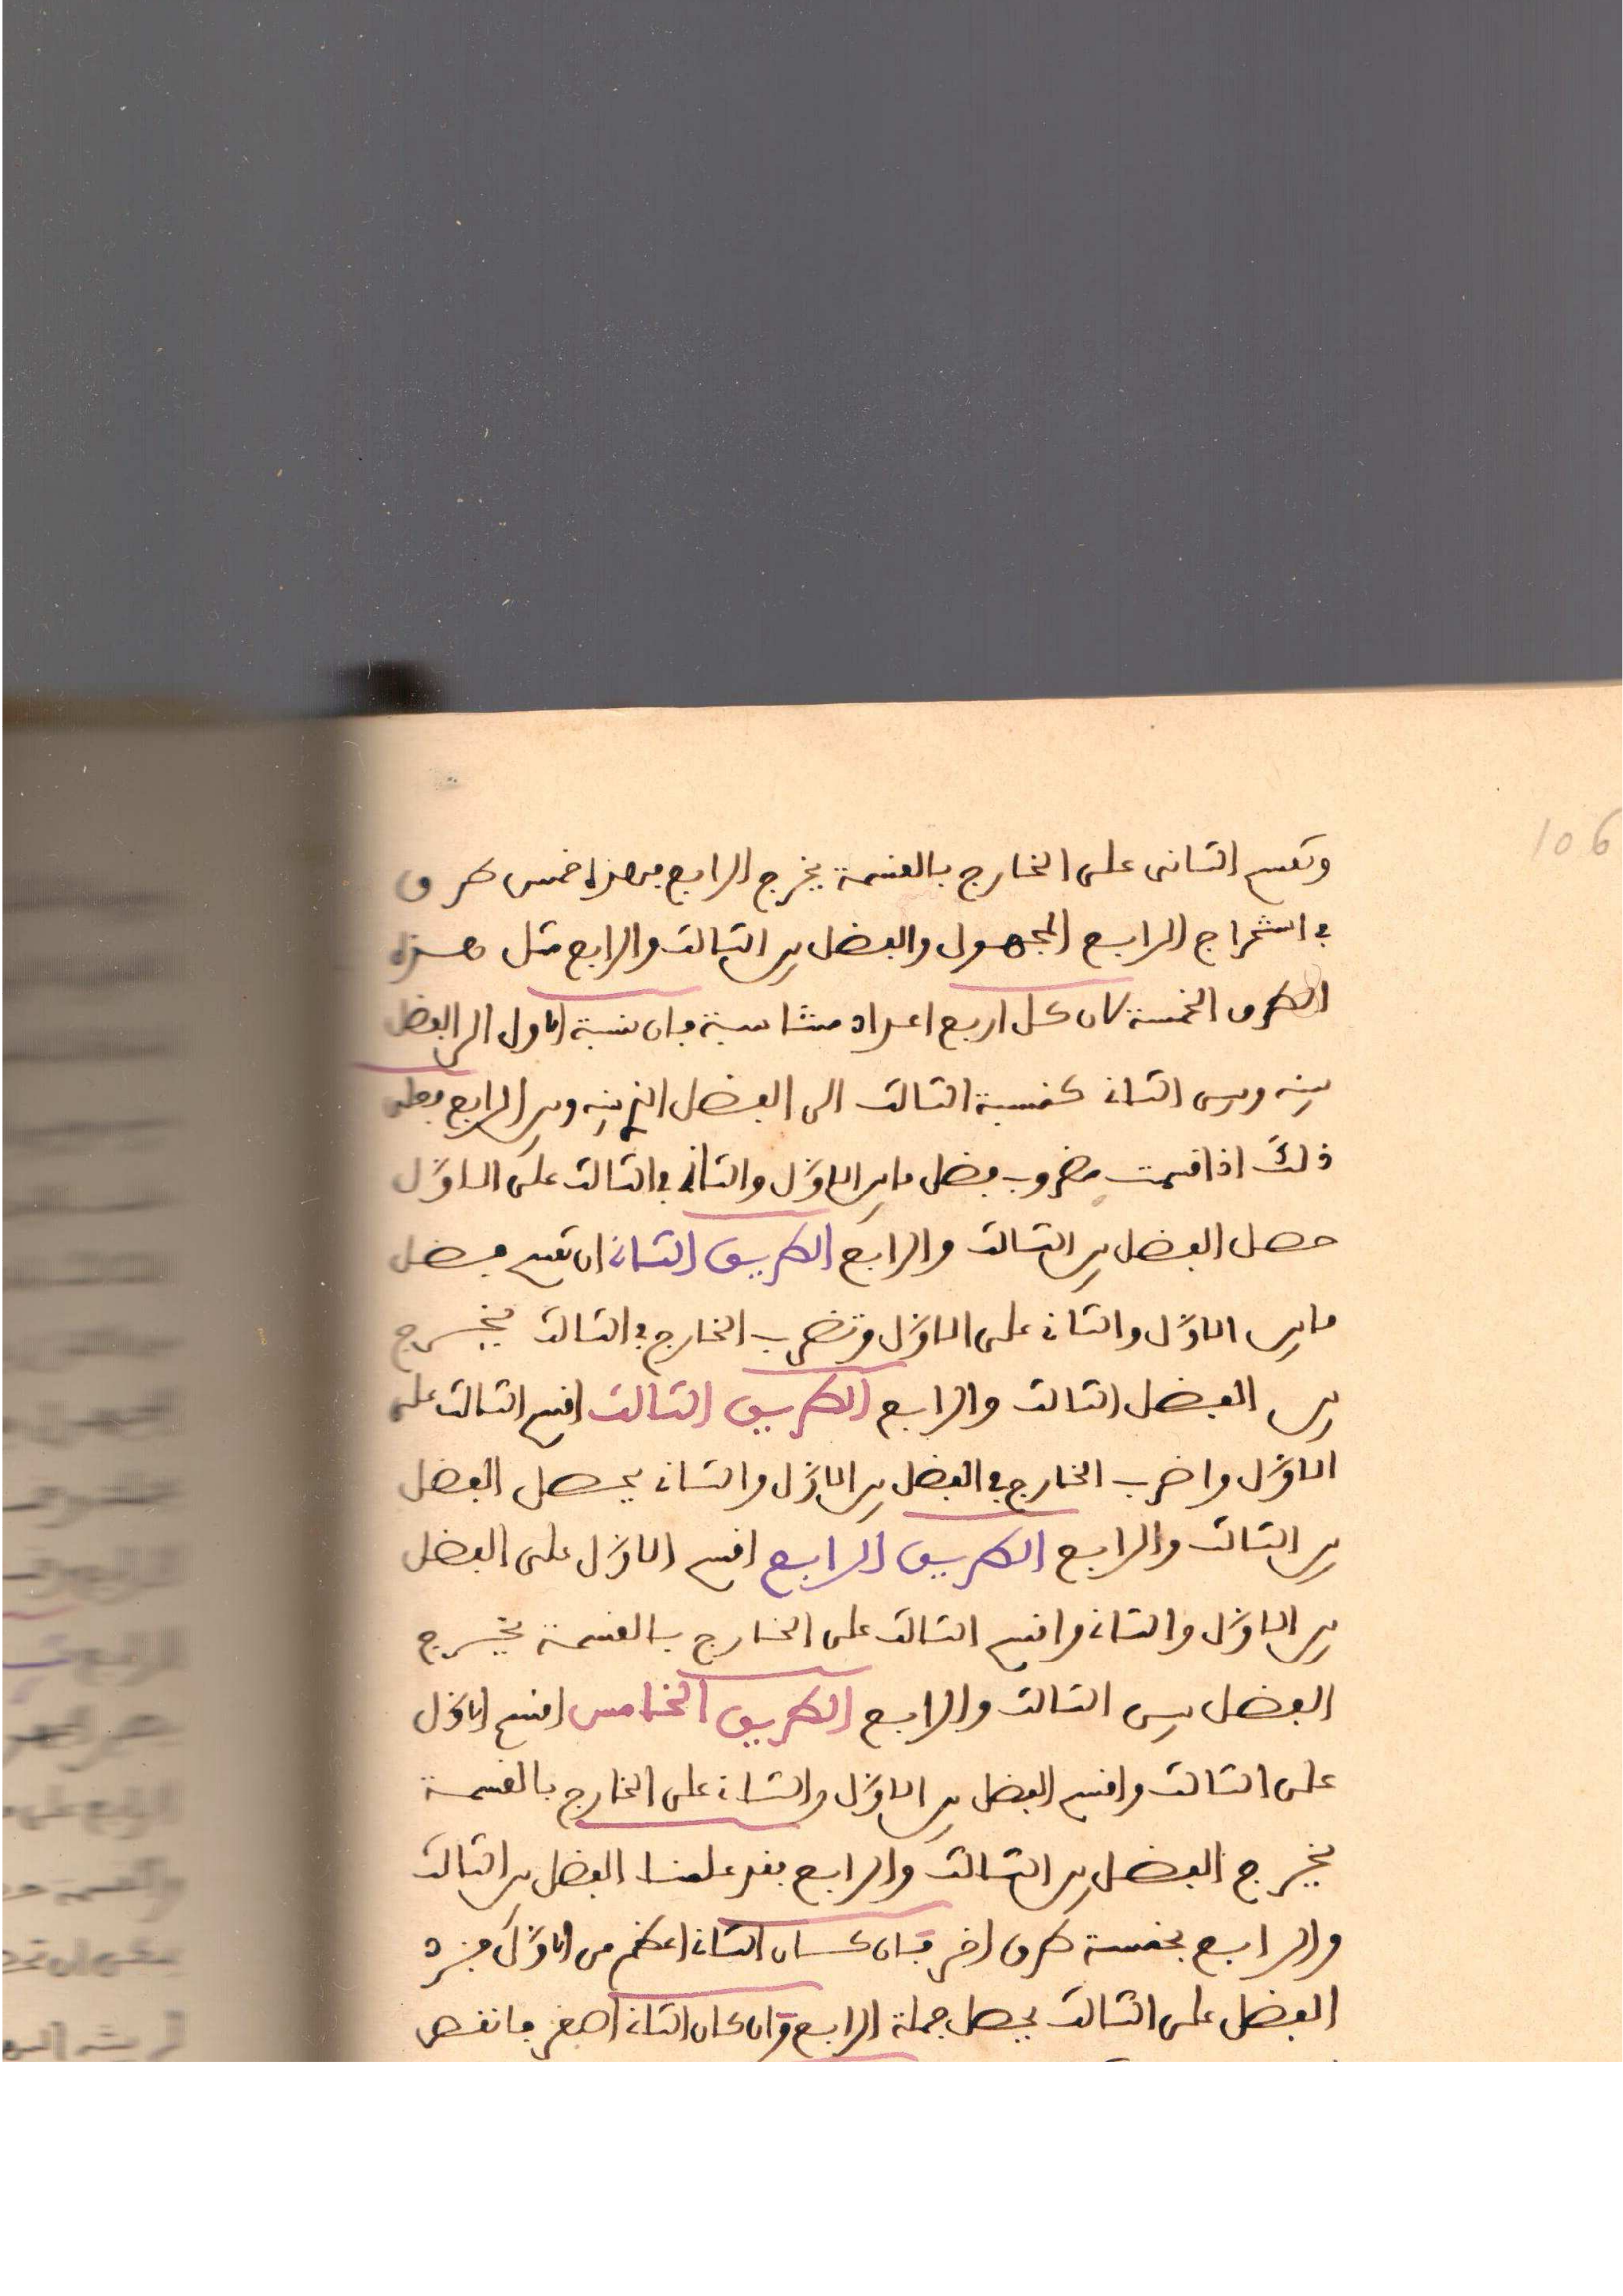 106
وتقسم الثانى على الخارج بالقسمة يخرج الرابع فهذه خمس طرق
في استخراج الرابع المجهول والفضل بين الثالث والرابع مثل هذه
الطرق الخمسة لان كل اربع اعداد متناسبة فان نسبة الاول الى الفضل
بينه وبين الثاني كنسبة الثالث الى الفضل الذي بينه وبين الرابع فعلى
ذلك اذا قسمت مضروب فضل ما بين الاوّل والثاني في الثالث على الاوّل
حصل الفضل بين الثالث والرابع الطريق الثاني ان تقسم فضل
ما بين الاوّل والثاني على الاوّل وتضرب الخارج في الثالث يخرج
بين الفضل الثالث والرابع الطريق الثالث اقسم الثالث على
الاوّل واضرب الخارج في الفضل بين الاوّل والثاني يحصل الفضل
بين الثالث والرابع الطريق الرابع اقسم الاوّل على الفضل
بين الاوّل والثاني واقسم الثالث على الخارج بالقسمة يخرج
الفضل بين الثالث والرابع الطريق الخامس اقسم الاوّل
على الثالث واقسم الفضل بين الاوّل والثاني على الخارج بالقسمة
يخرج الفضل بين الثالث والرابع فقد علمنا الفضل بين الثالث
والرابع بخمسة طرق اخر فان كان الثاني اعظم من الاوّل فزد
الفضل على الثالث يحصل جملة الرابع وان كان الثاني اصغر فانقص